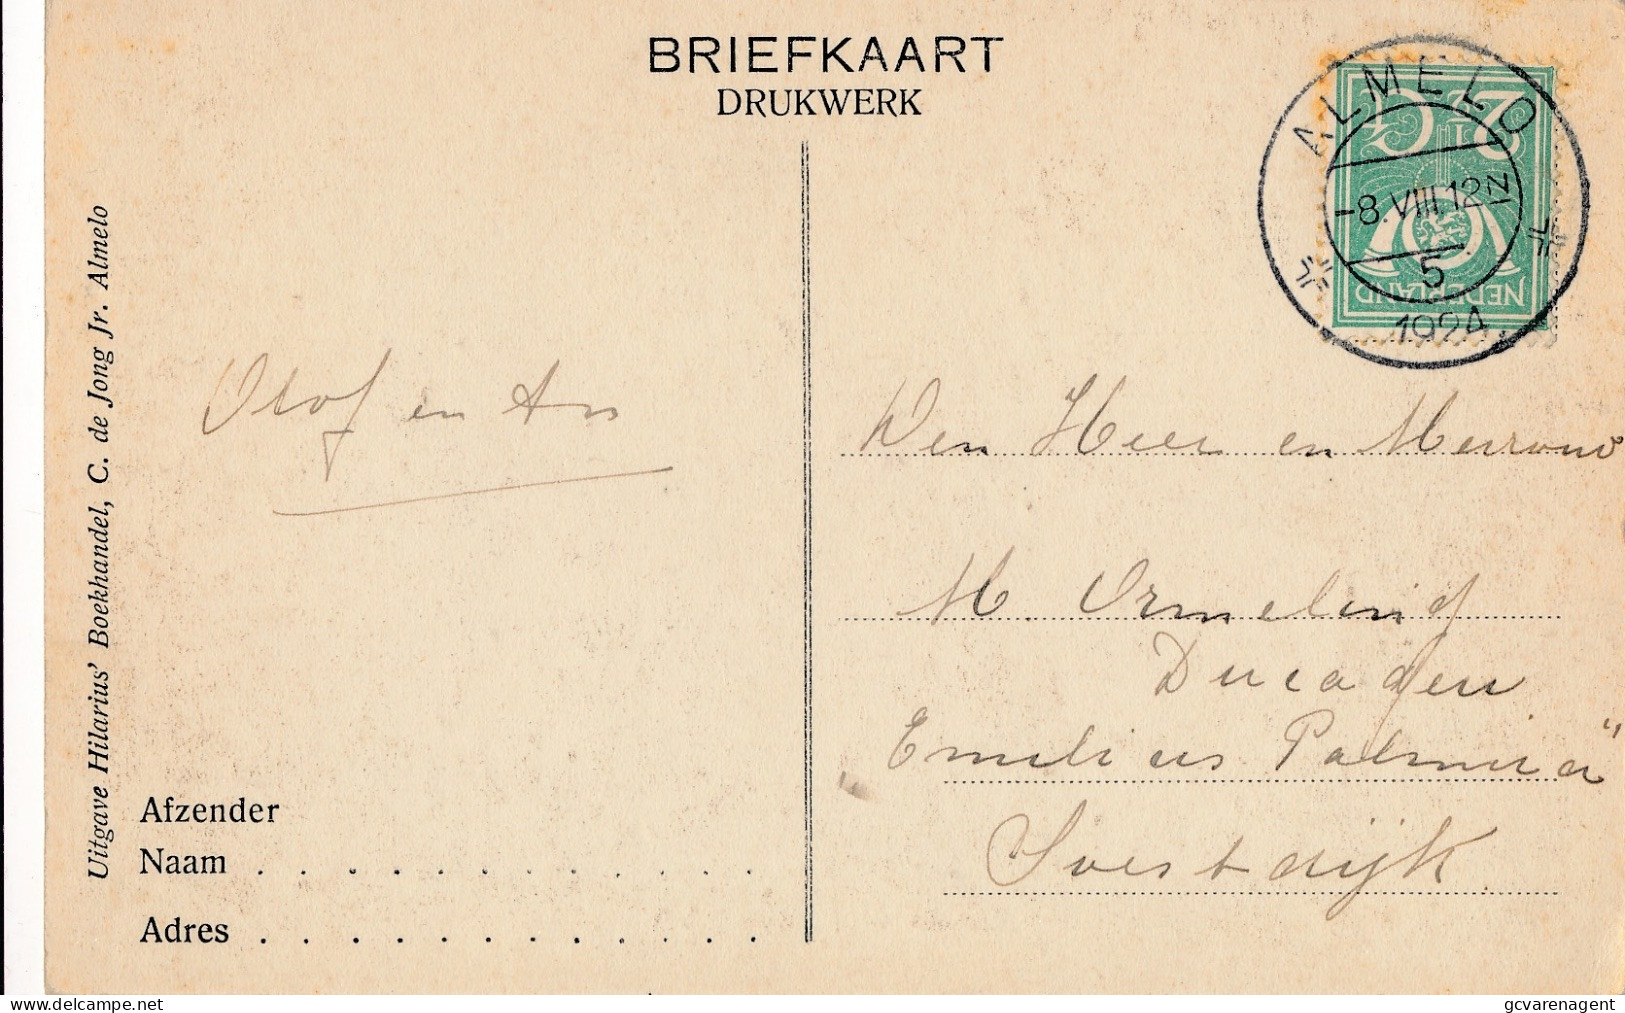 BRIEFKAART
DRUKWERK
ALMELO
-8.VIII.12N
5
1924
2½ Ct
NEDERLAND
Uitgave Hilarius' Boekhandel, C. de Jong Jr. Almelo
Olof en An
Den Heer en Mevrouw
M. Ormeling
„Emilius Palmira"
Soestdijk
Afzender
Naam
Adres
www.delcampe.net
gcvarenagent